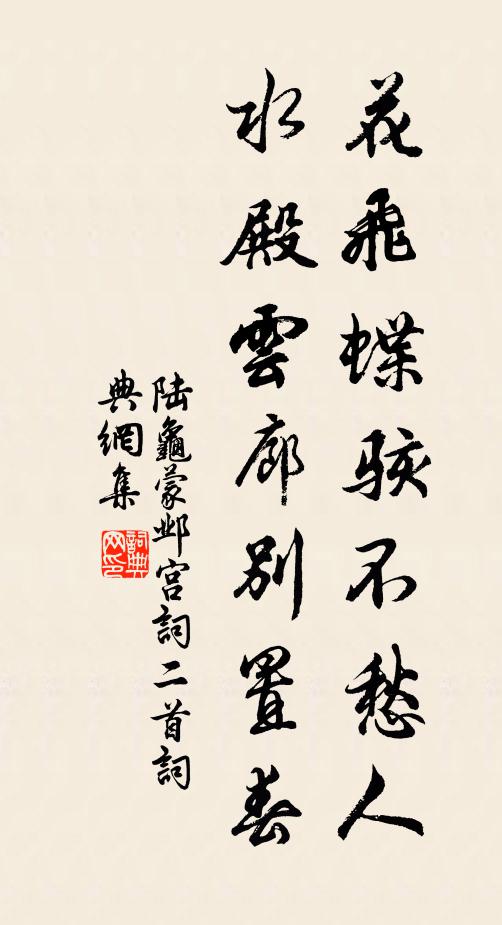 花飛蝶駭不愁人
水殿雲廊别置春
陆龜蒙邺宫詞二首詞
典網集
詞典
网印